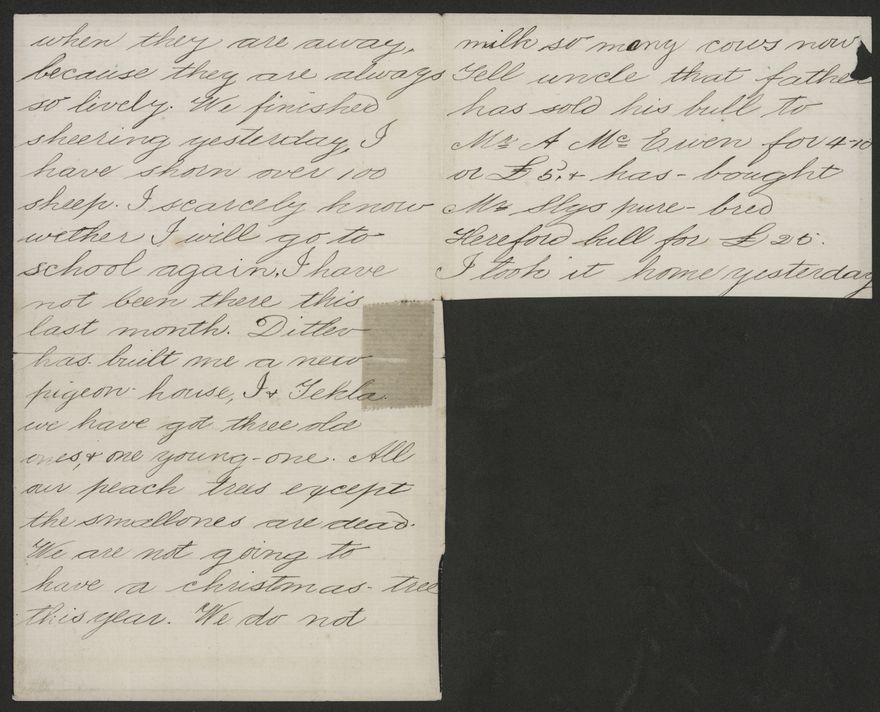 when they are away,
because they are always
so lively. We finished
sheering yesterday, I
have shorn over 100
sheep. I scarcely know
wether I will go to
school again. I have
not been there this
last month. Ditlev
has built me a new
pigeon-house, I & Tekla
we have got three old
ones, & one young-one. All
our peach trees except
the smallones are dead.
We are not going to
have a christmas-tree
this year. We do not
milk so many cows now
Tell uncle that father
has sold his bull to
Mr. A McEwen for 4-10
or £5, & has-bought
Mr Slys pure-bred
Hereford bull for £25.
I took it home yesterday